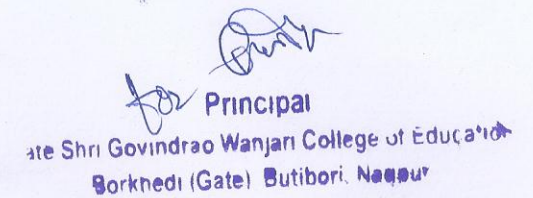 for
Principal
ate Shri Govindrao Wanjari College of Education
Borkhedi (Gate) Butibori, Nagpur